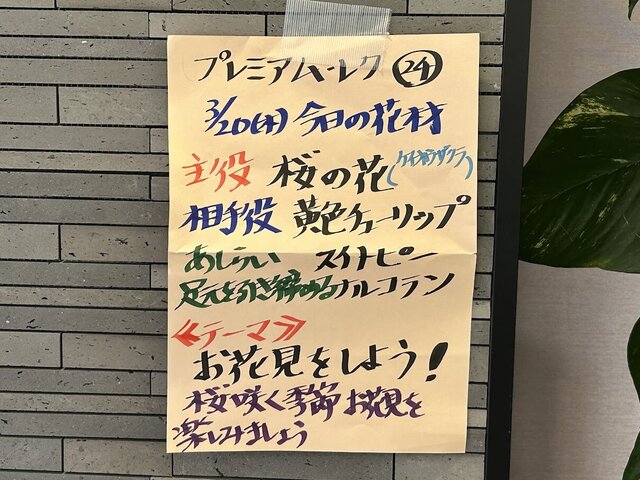 プレミアムレク ㉔
3/20(木) 今日の花材
主役 桜の花(ケイオウザクラ)
相手役 黄色チューリップ
あしらい スイトピー
足元を引き締めるナルコラン
≪テーマ≫
お花見をしよう!
桜咲く季節 お花見を
楽しみましょう